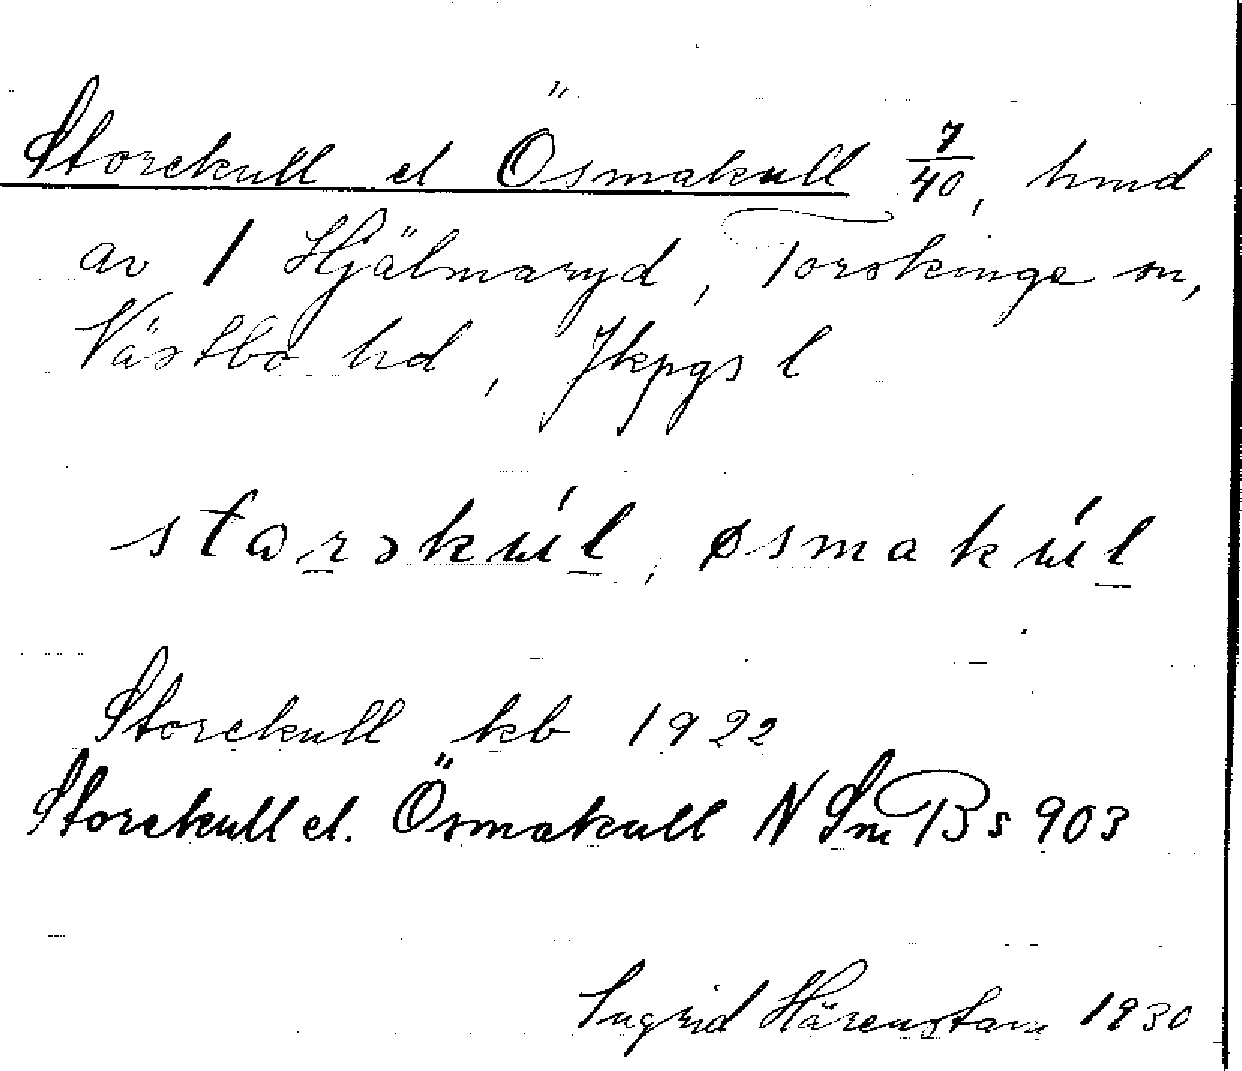 Storekull el Ösmakull 7/40, hmd
av 1 Hjälmaryd, Torskinge sn,
Västbo hd, Jkpgs l
starəkúl, øsmakúl
Storekull kb 1922
Storekull el. Ösmakull NSmB s 903
Ingrid Härenstam 1930